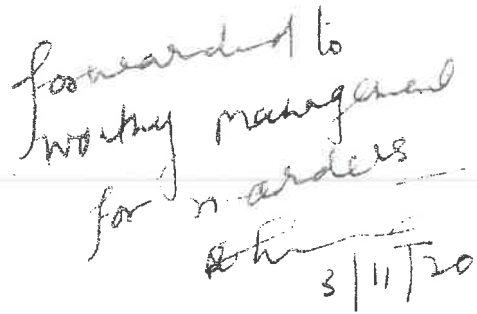 forwarded to
worthy management
for n orders
3/11/20